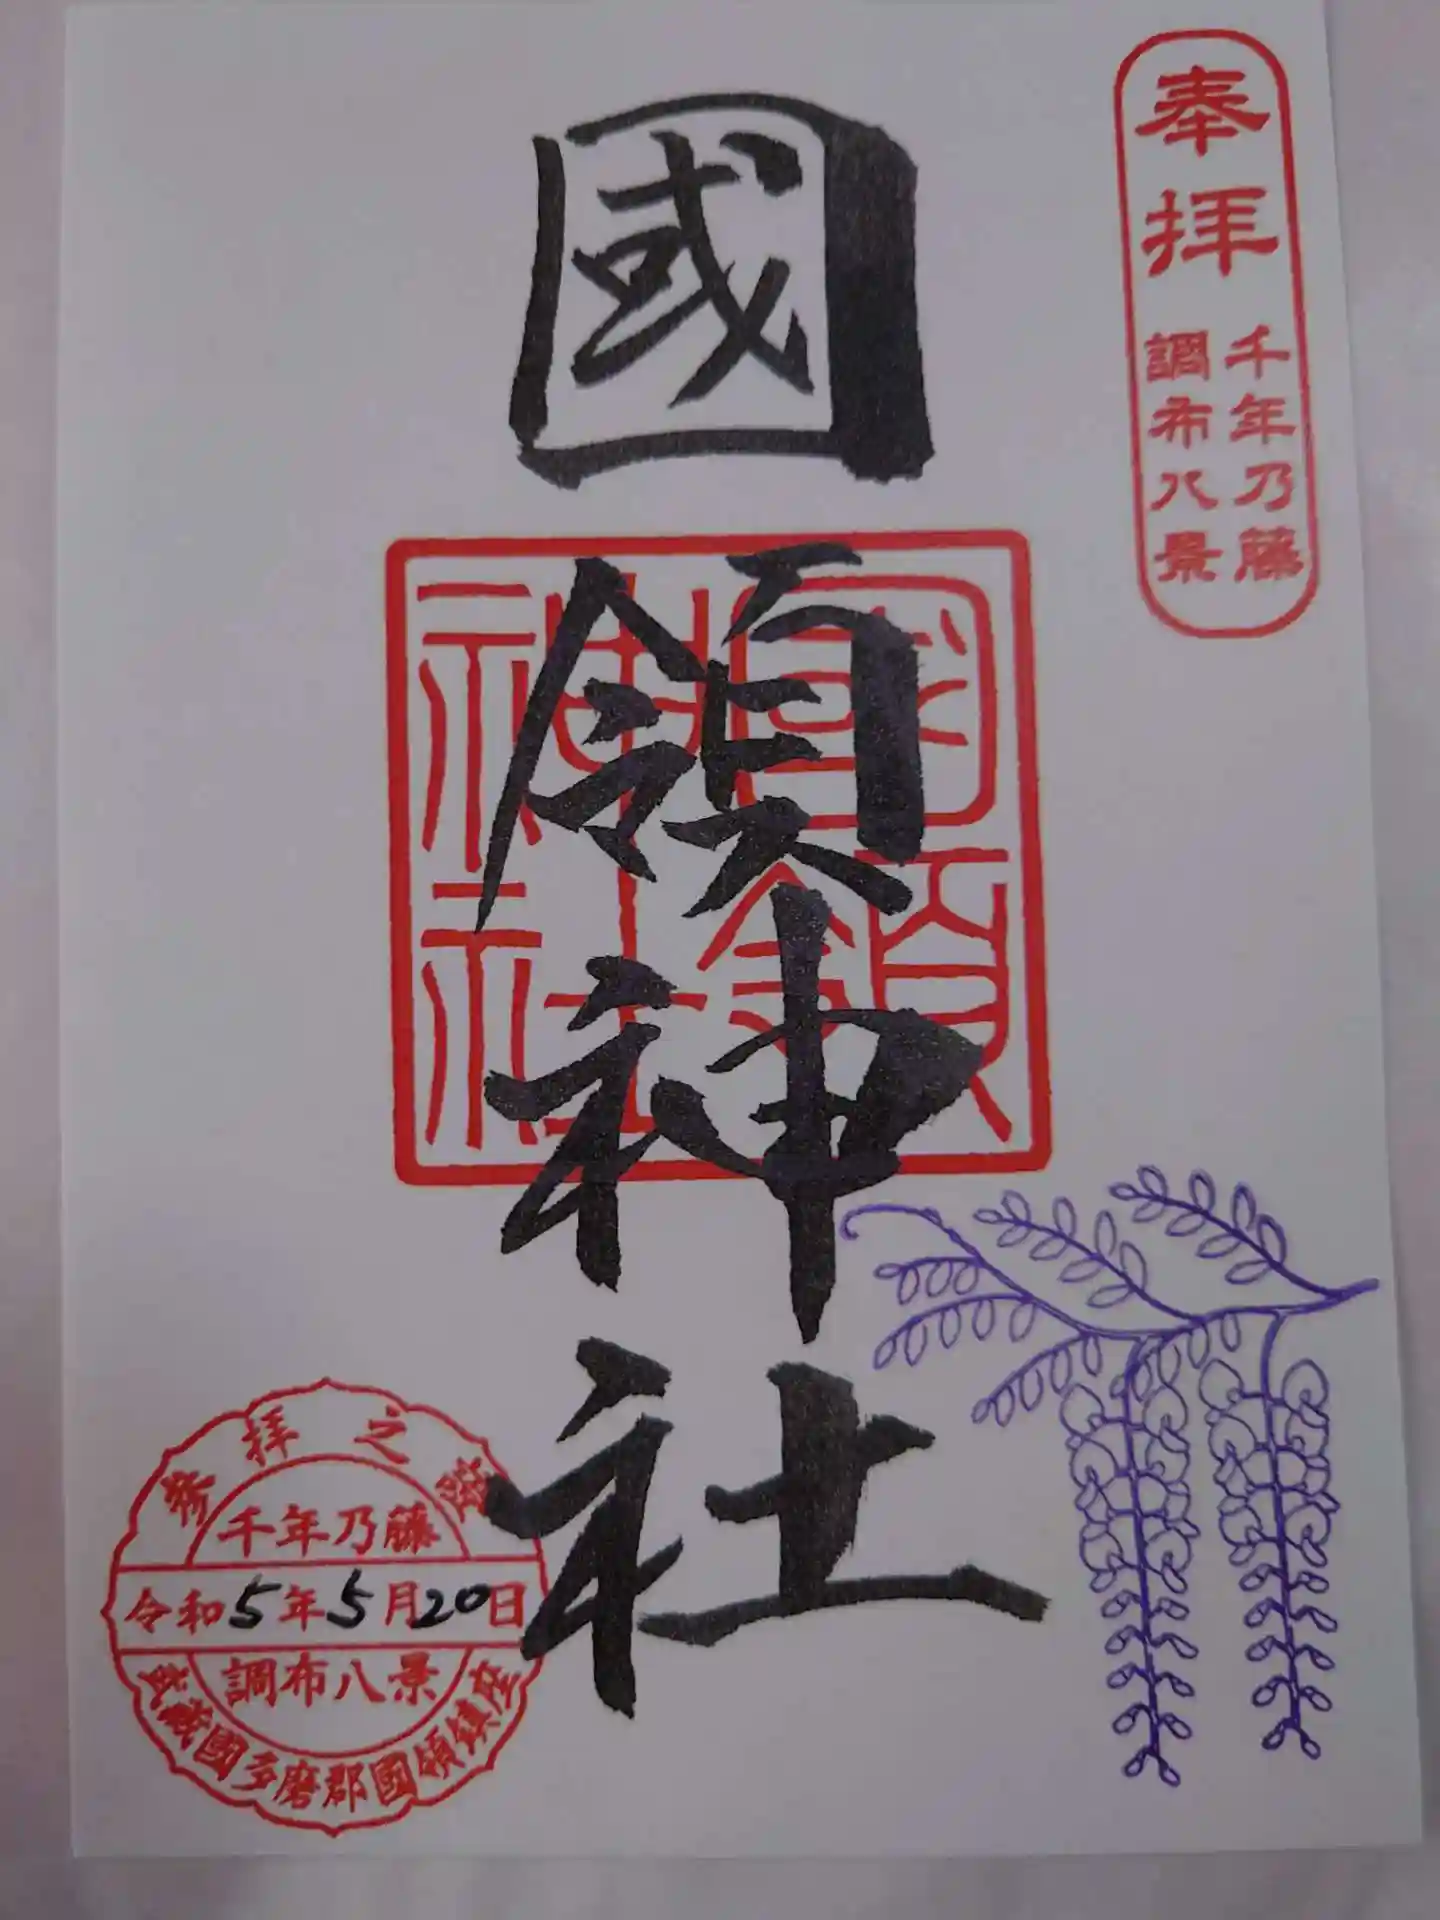 奉拝
千年乃藤
調布八景
國領神社
國領
神社
參拜之證
千年乃藤
令和5年5月20日
調布八景
武蔵國多磨郡國領鎮座